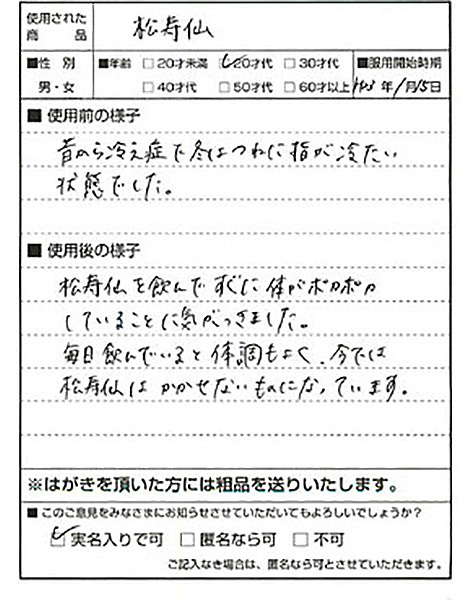 使用された
商品 松寿仙
■性別 ■年齢 □20才未満 ☑20才代 □30才代 ■服用開始時期
男・女 □40才代 □50才代 □60才以上 年1月15日
■ 使用前の様子
昔から冷え症で冬はつねに指が冷たい
状態でした。
■ 使用後の様子
松寿仙を飲んですぐに体がポカポカ
していることに気がつきました。
毎日飲んでいると体調もよく、今では
松寿仙はかかせないものになっています。
※はがきを頂いた方には粗品を送りいたします。
■ このご意見をみなさまにお知らせさせていただいてもよろしいでしょうか?
☑実名入りで可 □匿名なら可 □不可
ご記入なき場合は、匿名なら可とさせていただきます。